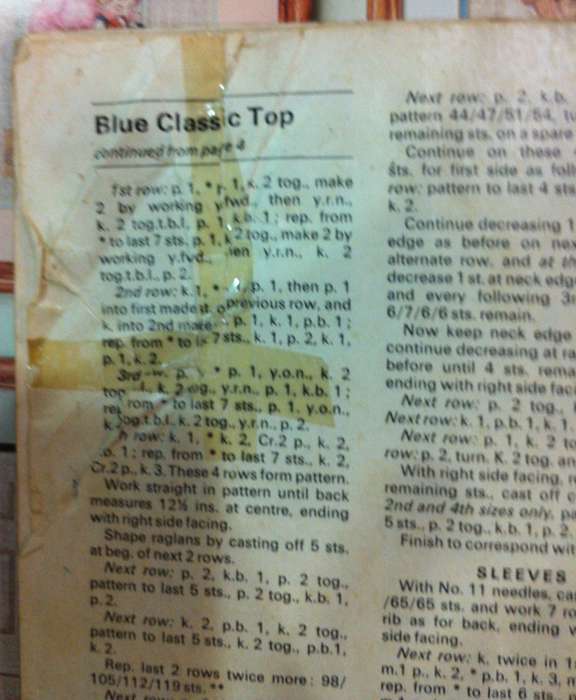 Blue Classic Top
continued from page 4
1st row: p. 1, * p. 1, k. 2 tog., make
2 by working y.fwd., then y.r.n.,
k. 2 tog.t.b.l., p. 1, k.b. 1; rep. from
* to last 7 sts., p. 1, k. 2 tog., make 2 by
working y.fwd., then y.r.n., k. 2
tog.t.b.l., p. 2.
2nd row: k. 1, * p. 1, then p. 1
into first made st. of previous row, and
k. into 2nd made p. 1, k. 1, p.b. 1;
rep. from * to last 7 sts., k. 1, p. 2, k. 1,
p. 1, k. 2.
3rd row: p. * p. 1, y.o.n., k. 2
tog. k. 2 tog., y.r.n., p. 1, k.b. 1;
rep. from * to last 7 sts., p. 1, y.o.n.,
k. tog.t.b.l., k. 2 tog., y.r.n., p. 2.
row: k. 1, * k. 2, Cr.2 p., k. 2,
p.b. 1; rep. from * to last 7 sts., k. 2,
Cr.2 p., k. 3. These 4 rows form pattern.
Work straight in pattern until back
measures 12½ ins. at centre, ending
with right side facing.
Shape raglans by casting off 5 sts.
at beg. of next 2 rows.
Next row: p. 2, k.b. 1, p. 2 tog.,
pattern to last 5 sts., p. 2 tog., k.b. 1,
p. 2.
Next row: k. 2, p.b. 1, k. 2 tog.,
pattern to last 5 sts., k. 2 tog., p.b.1,
k. 2.
Rep. last 2 rows twice more: 98/
105/112/119 sts. **
Next row:
Next row: p. 2, k.b.
pattern 44/47/51/54, tu
remaining sts. on a spare
Continue on these
sts. for first side as foll
row: pattern to last 4 sts
k. 2.
Continue decreasing 1
edge as before on nex
alternate row, and at th
decrease 1 st. at neck edge
and every following 3r
6/7/6/6 sts. remain.
Now keep neck edge
continue decreasing at ra
before until 4 sts. rema
ending with right side fac
Next row: p. 2 tog.,
Next row: k. 1, p.b. 1, k. 1.
Next row: p. 1, k. 2 to
row: p. 2, turn. K. 2 tog. an
With right side facing, r
remaining sts., cast off c
2nd and 4th sizes only, pa
5 sts., p. 2 tog., k.b. 1, p. 2.
Finish to correspond wit
SLEEVES
With No. 11 needles, cas
/65/65 sts. and work 7 ro
rib as for back, ending w
side facing.
Next row: k. twice in 1s
m.1 p., k. 2, * p.b. 1, k. 3, m
rep. from * to last 6 sts.